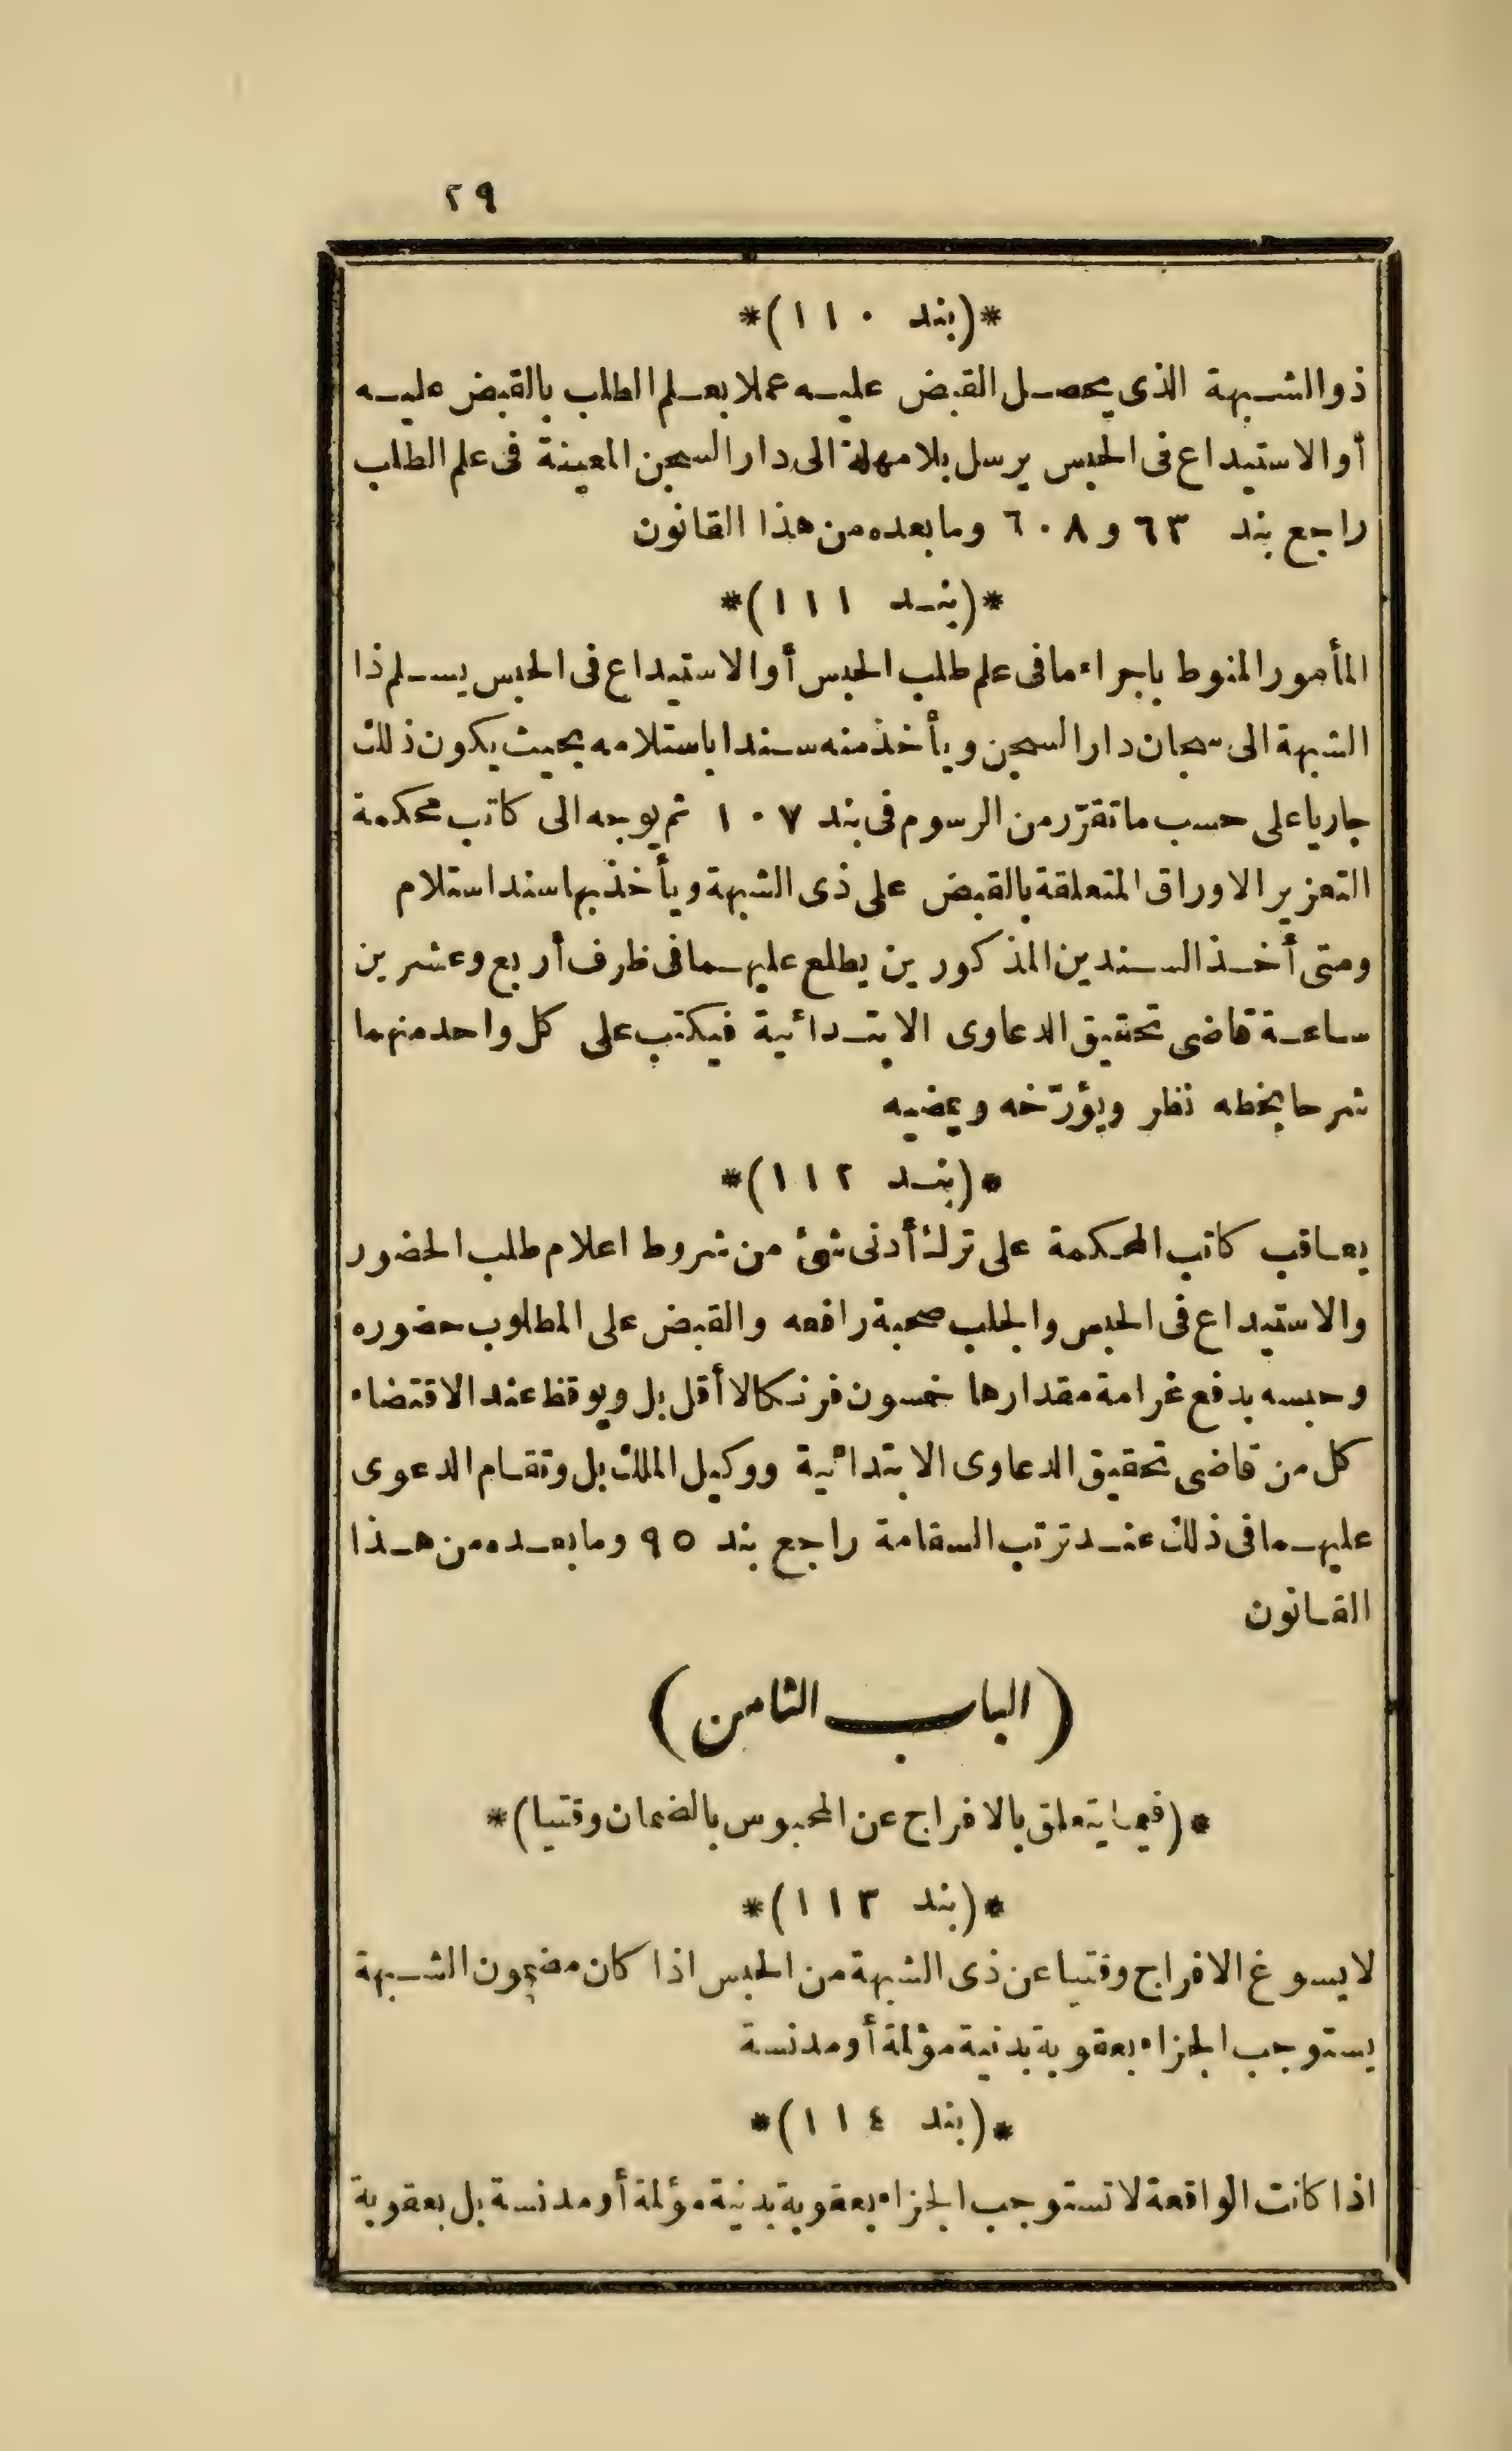 ٢٩
*(بند ١١٠)*
ذو الشبهة الذى يحصل القبض عليه عملا بعلم الطلب بالقبض عليه
أو الاستيداع فى الحبس يرسل بلا مهلة الى دار السجن المعينة فى علم الطلب
راجع بند ٦٣ و ٦٠٨ وما بعده من هذا القانون
*(بند ١١١)*
المأمور المنوط باجراء ما فى علم طلب الحبس أو الاستيداع فى الحبس يسلم ذا
الشبهة الى سجان دار السجن ويأخذ منه سندا باستلامه بحيث يكون ذلك
جاريا على حسب ما تقرّر من الرسوم فى بند ١٠٧ ثم يوجه الى كاتب محكمة
التعزير الاوراق المتعلقة بالقبض على ذى الشبهة ويأخذ بها سند استلام
ومتى أخذ السندين المذكورين يطلع عليهما فى ظرف أربع وعشرين
ساعة قاضى تحقيق الدعاوى الابتدائية فيكتب على كل واحد منهما
شرحا بخطه نظر ويؤرّخه ويمضيه
*(بند ١١٢)*
يعاقب كاتب المحكمة على ترك أدنى شئ من شروط اعلام طلب الحضور
والاستيداع فى الحبس والجلب صحبة رافعه والقبض على المطلوب حضوره
وحبسه بدفع غرامة مقدارها خمسون فرنكا لا أقل بل ويوقظ عند الاقتضاء
كل من قاضى تحقيق الدعاوى الابتدائية ووكيل الملك بل وتقام الدعوى
عليهما فى ذلك عند ترتب السقامة راجع بند ٩٥ وما بعده من هذا
القانون
(الباب الثامن)
*(فيما يتعلق بالافراج عن المحبوس بالضمان وقتيا)*
*(بند ١١٣)*
لا يسوغ الافراج وقتيا عن ذى الشبهة من الحبس اذا كان مضمون الشبهة
يستوجب الجزاء بعقوبة بدنية مؤلمة أو مدنسة
*(بند ١١٤)*
اذا كانت الواقعة لا تستوجب الجزاء بعقوبة بدنية مؤلمة أو مدنسة بل بعقوبة